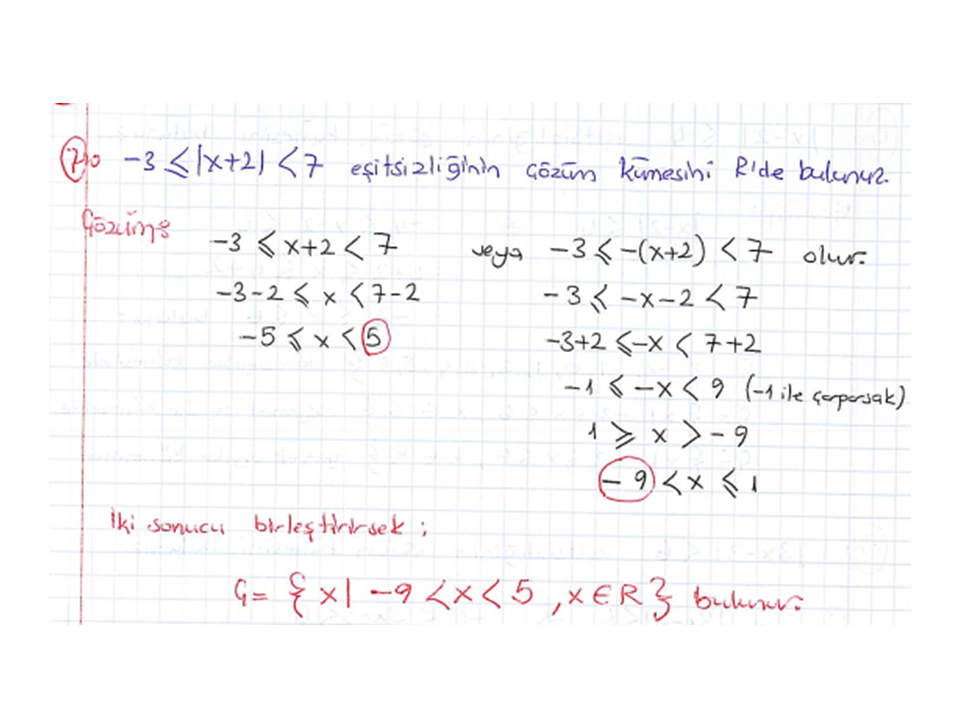 7) -3 ≤ |x+2| < 7 eşitsizliğinin çözüm kümesini R'de bulunuz.
Çözüm:
-3 ≤ x+2 < 7 veya -3 ≤ -(x+2) < 7 olur.
-3-2 ≤ x < 7-2 -3 ≤ -x-2 < 7
-5 ≤ x < 5 -3+2 ≤ -x < 7+2
-1 ≤ -x < 9 (-1 ile çarparsak)
1 ≥ x > -9
-9 < x ≤ 1
İki sonucu birleştirirsek ;
Ç= { x | -9 < x < 5 , x ∈ R } bulunur.